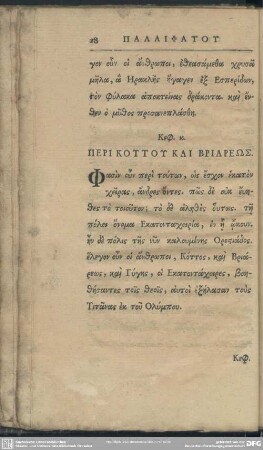 28 ΠΑΛΑΙΦΑΤΟΥ
γον οὖν οἱ ἄνθρωποι, ἐθεασάμεθα χρυσᾶ
μῆλα, ἃ Ἡρακλῆς ἤγαγεν ἐξ Ἑσπερίδων,
τὸν φύλακα ἀποκτείνας δράκοντα. καὶ ἔν-
θεν ὁ μῦθος προσανεπλάσθη.
Κεφ. κ.
ΠΕΡΙ ΚΟΤΤΟΥ ΚΑΙ ΒΡΙΑΡΕΩΣ.
Φασὶν οὖν περὶ τούτων, ὡς ἔσχον ἑκατὸν
χεῖρας, ἄνδρες ὄντες. πῶς δὲ οὐκ
τὸ τοιοῦτον; τὸ δὲ ἀληθὲς οὕτως. τῇ
πόλει ὄνομα Ἑκατονταχειρία, ἐν ᾗ ᾤκουν.
ἦν δὲ πόλις τῆς νῦν καλουμένης Ὀρεστιάδος.
ἔλεγον οὖν οἱ ἄνθρωποι, Κόττος, καὶ Βριά-
ρεως, καὶ Γύγης, οἱ Ἑκατοντάχειρες, βοη-
θήσαντες τοῖς θεοῖς, αὐτοὶ ἐξήλασαν τοὺς
Τιτᾶνας ἐκ τοῦ Ὀλύμπου.
Κεφ.